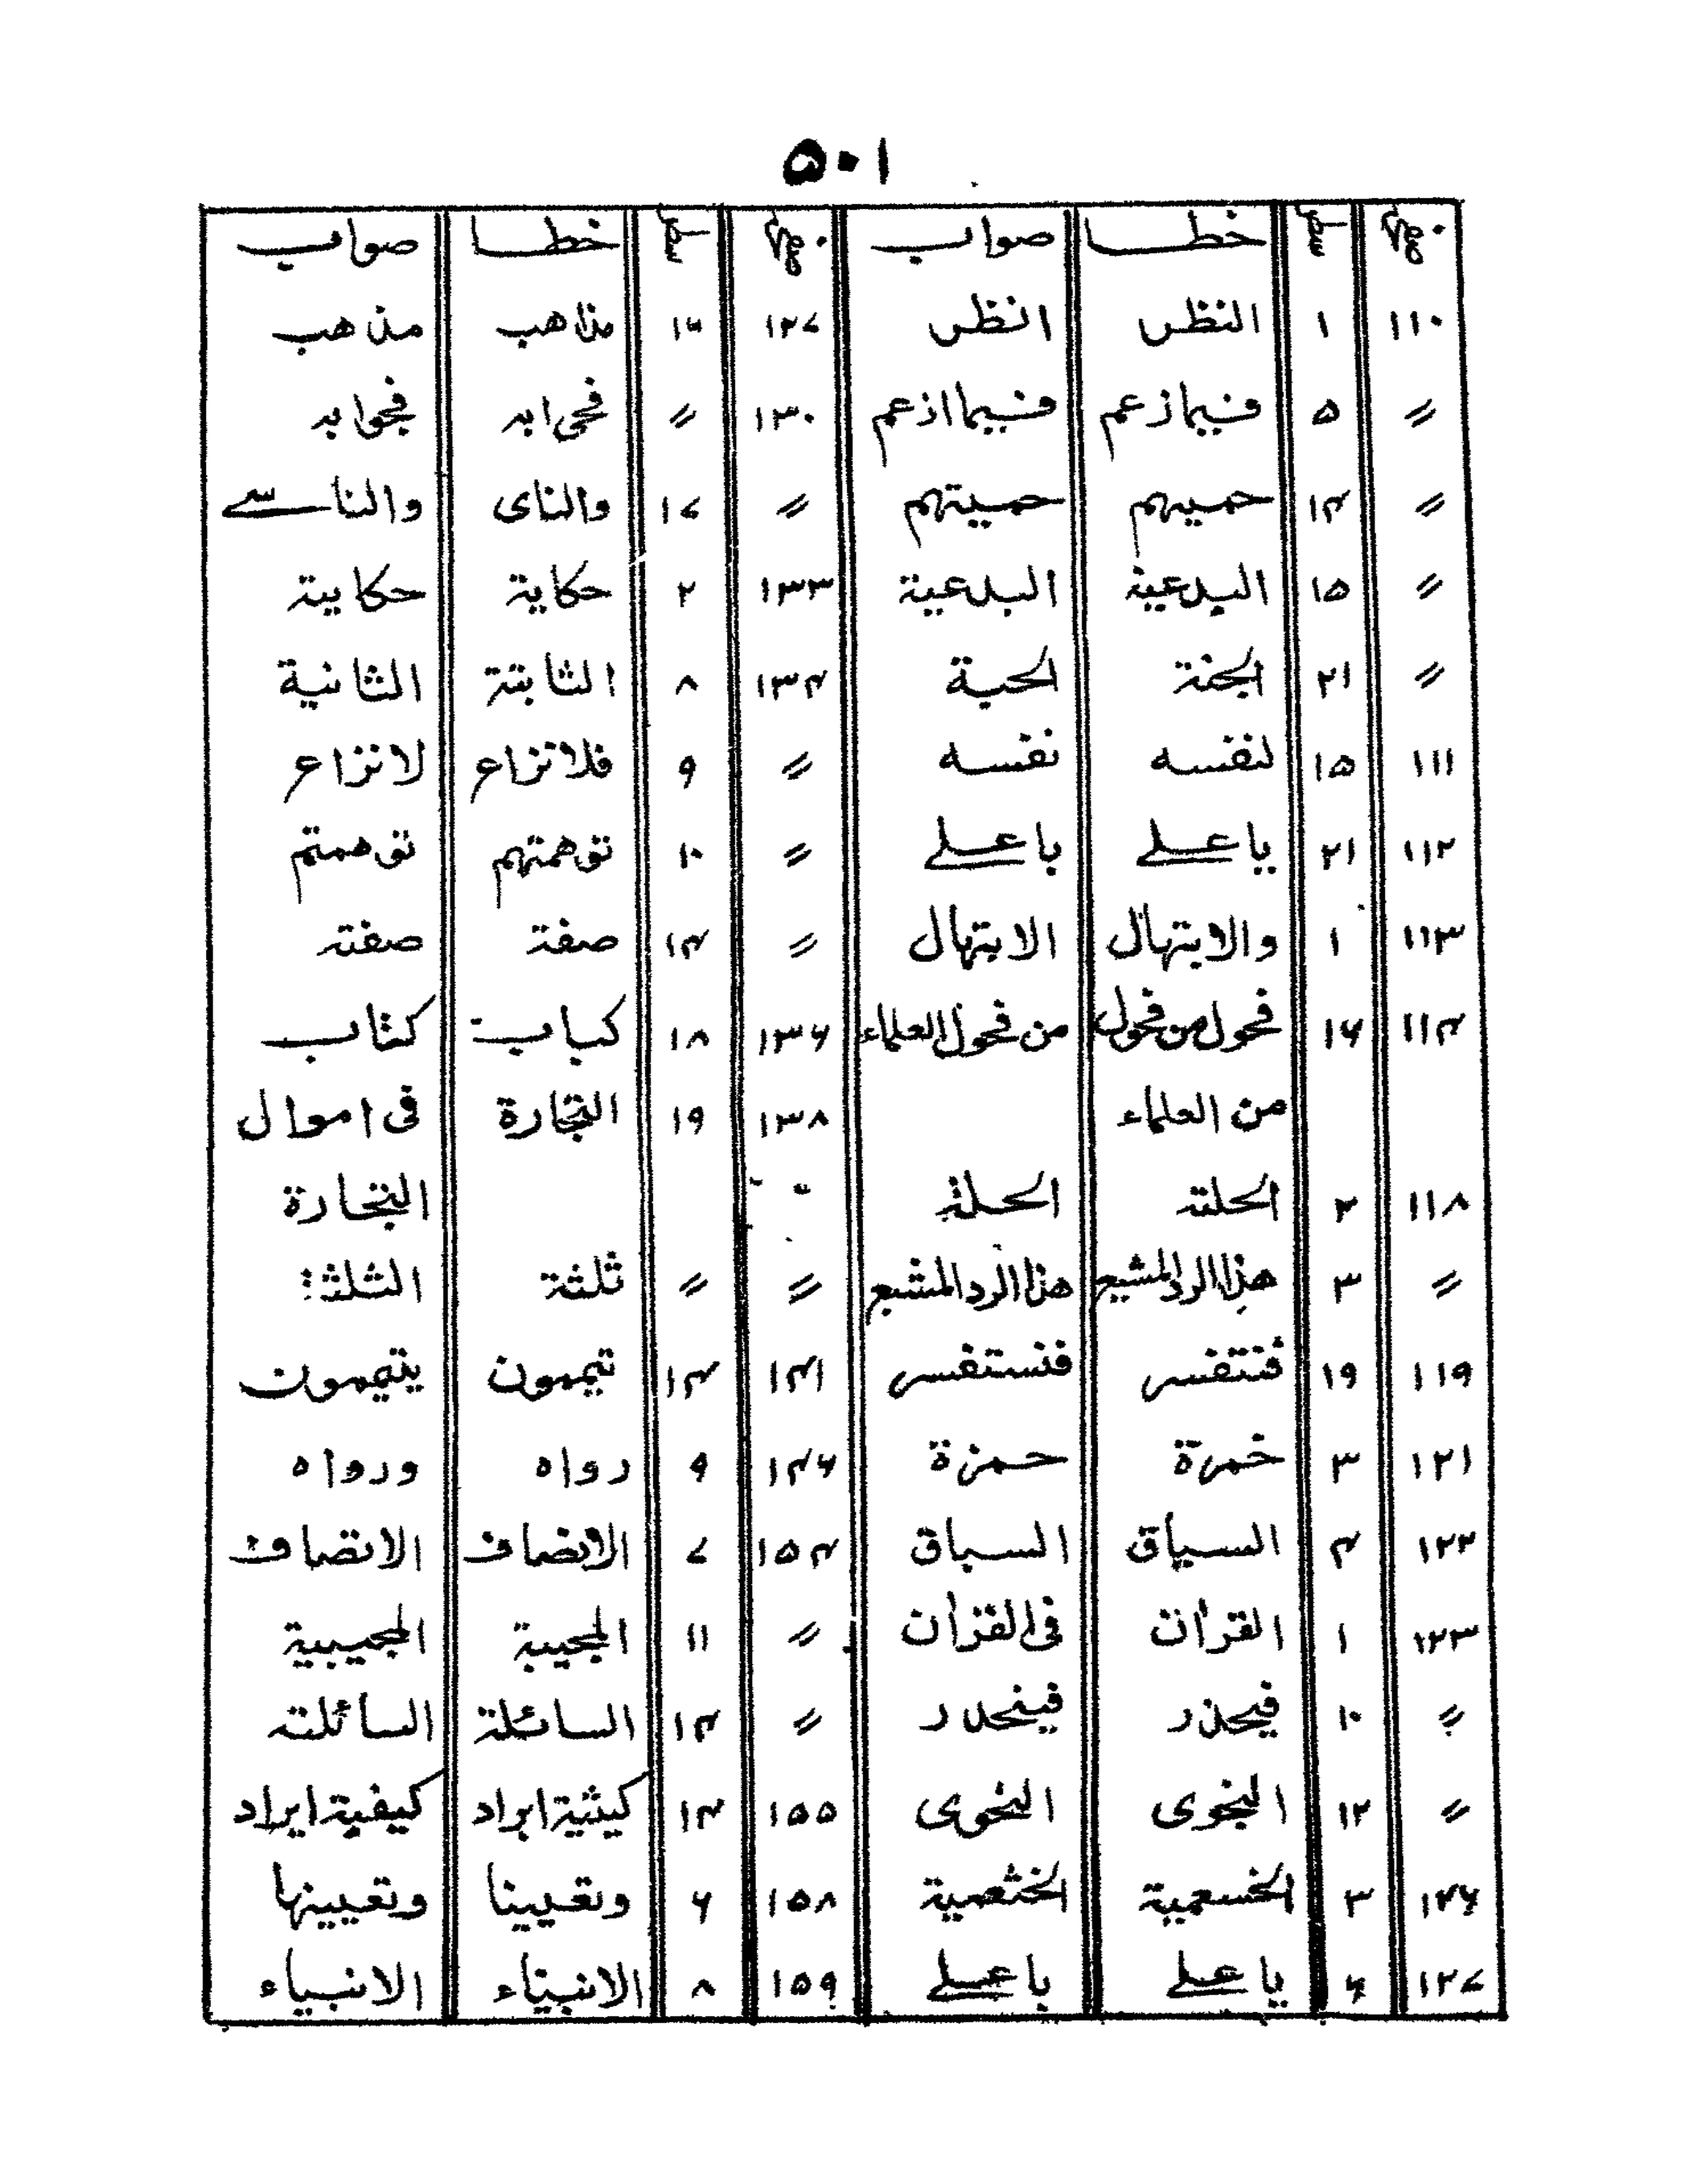 ٥٠١
صفحہ سطر خطا صواب صفحہ سطر خطا صواب
١١٠ ١ النظر انظر ١٢٧ ١٦ مذاهب مذهب
〃 ٥ فيما زعم فيما ازعم ١٣٠ 〃 فجوابه
〃 ١٤ حميهم حميتهم 〃 ١٧ والناى والناسے
〃 ١٥ البدعية ١٣٣ ٢ حكاية حكايية
〃 ٢١ الجنة الحية ١٣٤ ٨ الثابتة الثانية
١١١ ١٥ لنفسه نفسه 〃 ٩ فلا نزاع لا نزاع
١١٢ ٢١ يا علے با علے 〃 ١٠ توهمتهم توهمتم
١١٣ ١ والابتهال الابتهال 〃 ١٤ صفة صفته
١١٤ ١٦ فحول من فحول من فحول العلماء ١٣٦ ١٨ كتاب
من العلماء ١٣٨ ١٩ التجارة فى اموال
١١٨ ٢ الحلته الحلة التجارة
〃 ٣ هذا الرد المشيع هذا الرد المشبع 〃 〃 ثلثة الثلثة
١١٩ ١٩ فنتفسر فنستفسر ١٤١ ١٤ تيممون يتيممون
١٢١ ٣ خمرة حمزة ١٤٦ ٩ رواه ورواه
١٢٢ ٤ السياق السباق ١٥٤ ٧ الانضاف الانصاف
١٢٣ ١ القران فى القران 〃 ١١ المجيبة المجيبية
〃 ١٠ فيحذر فينحدر 〃 ١٤ السائلة السائلته
〃 ١٢ النجوى النحوى ١٥٥ ١٤ كيثية ابراد كيفية ايراد
١٢٦ ٣ الخسعمية الخثعمية ١٥٨ ٦ وتعيينا وتعيينها
١٢٧ ٤ يا علے با علے ١٥٩ ٨ الانبياء